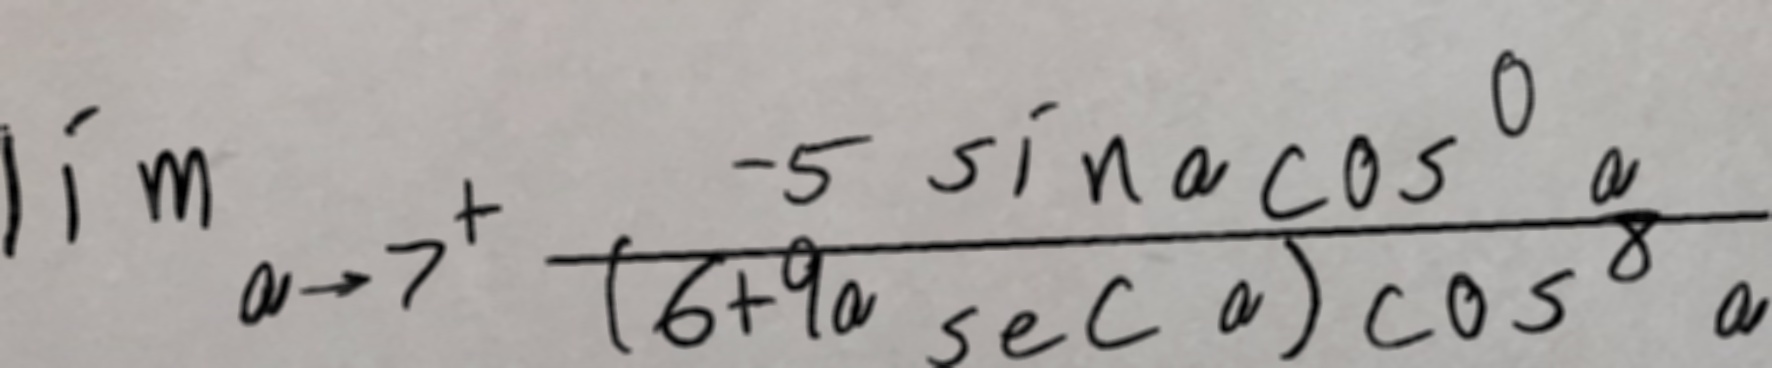 lim a→7⁺ \frac{-5 sin a cos⁰ a}{(6+9a sec a) cos⁸ a}